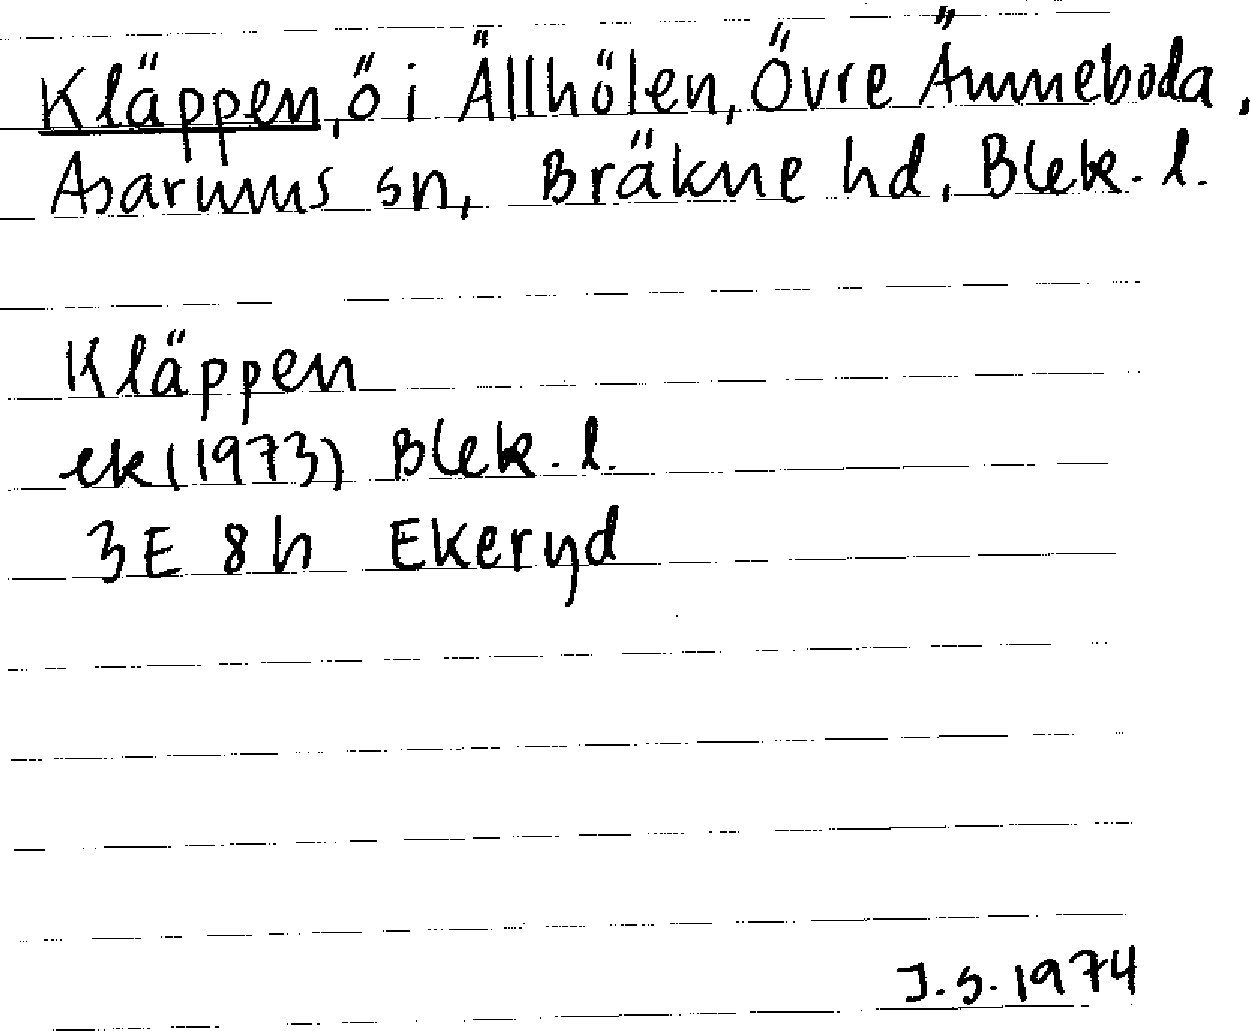 Kläppen, ö i Ällhölen, Övre Ämneboda,
Asarums sn, Bräkne hd, Blek. l.
Kläppen
ek (1973) Blek. l.
3E 8h Ekeryd
J.S. 1974